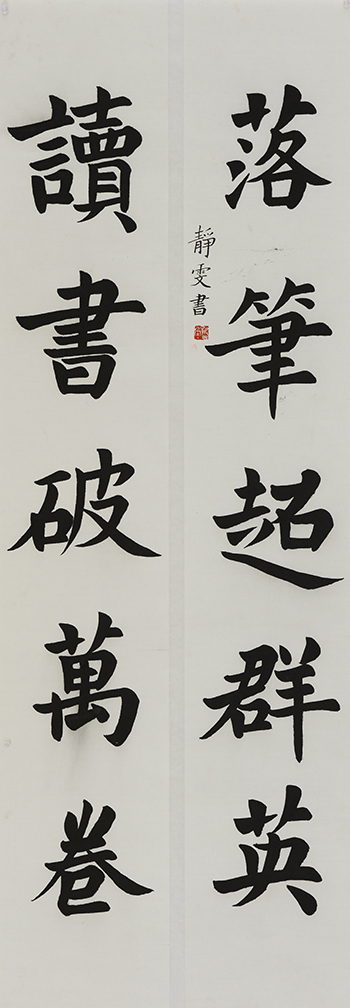 落筆超群英
靜雯書
讀書破萬卷